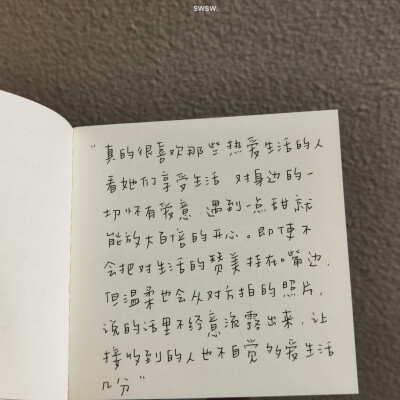 swsw.
“真的很喜欢那些热爱生活的人
看她们享受生活 对身边的一
切怀有爱意 遇到一点甜就
能放大百倍的开心。即使不
会把对生活的赞美挂在嘴边.
但温柔也会从对方拍的照片.
说的话里不经意流露出来.让
接收到的人也不自觉多爱生活
几分”